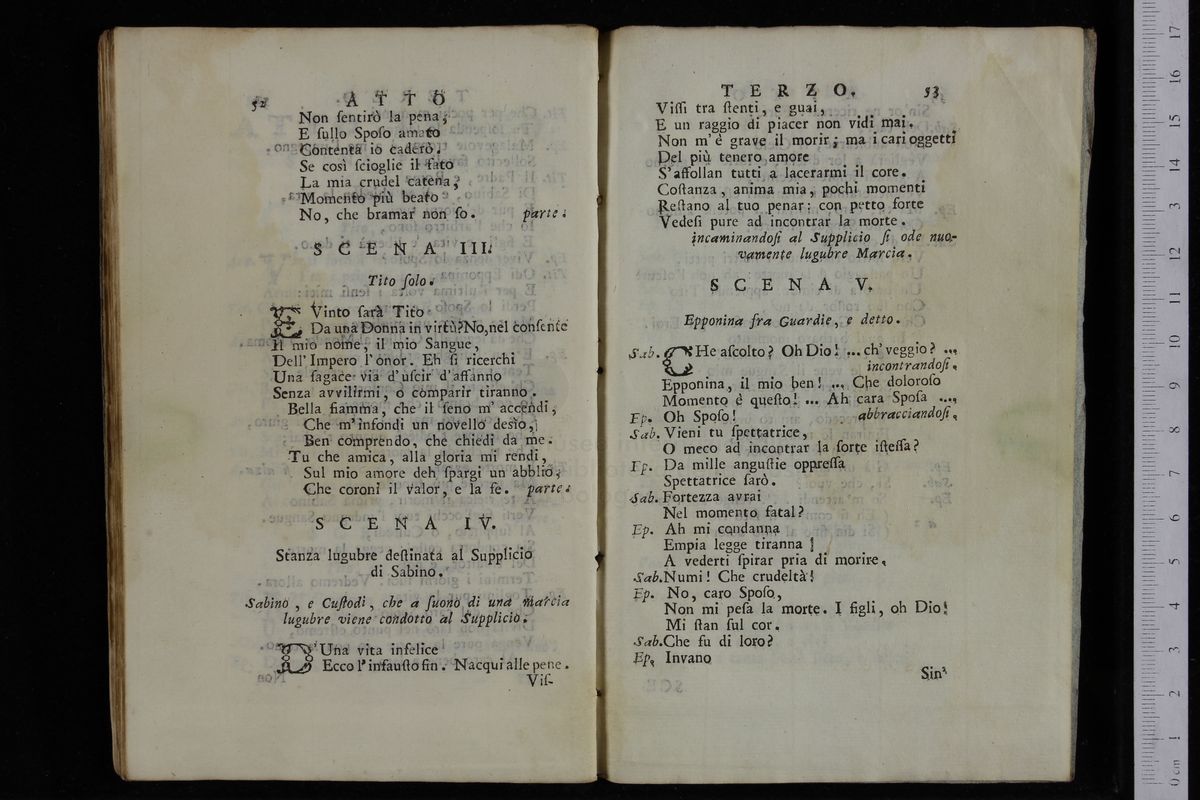 52 ATTO
Non ſentirò la pena,
E ſullo Spoſo amato
Contenta io caderò.
Se così ſcioglie il fato
La mia crudel catena,
Momento più beato
No, che bramar non ſo. parte.
SCENA III.
Tito ſolo.
E Vinto ſarà Tito
Da una Donna in virtù? No, nel conſente
Il mio nome, il mio Sangue,
Dell' Impero l' onor. Eh ſi ricerchi
Una ſagace via d' uſcir d' affanno
Senza avvilirmi, o comparir tiranno.
Bella fiamma, che il ſeno m' accendi,
Che m' infondi un novello deſìo,
Ben comprendo, che chiedi da me.
Tu che amica, alla gloria mi rendi,
Sul mio amore deh ſpargi un abblìo,
Che coroni il valor, e la fe. parte.
SCENA IV.
Stanza lugubre deſtinata al Supplicio
di Sabino.
Sabino, e Cuſtodi, che a ſuono di una Marcia
lugubre viene condotto al Supplicio.
D' Una vita infelice
Ecco l' infauſto fin. Nacqui alle pene.
Viſ-
TERZO. 53
Viſſi tra ſtenti, e guai,
E un raggio di piacer non vidi mai.
Non m' è grave il morir; ma i cari oggetti
Del più tenero amore
S' affollan tutti a lacerarmi il core.
Coſtanza, anima mia, pochi momenti
Reſtano al tuo penar: con petto forte
Vedeſi pure ad incontrar la morte.
incaminandoſi al Supplicio ſi ode nuo-
vamente lugubre Marcia.
SCENA V.
Epponina fra Guardie, e detto.
Sab. CHe aſcolto? Oh Dio! ... ch' veggio? ...
incontrandoſi.
Epponina, il mio ben! ... Che doloroſo
Momento è queſto! ... Ah cara Spoſa ...,
Ep. Oh Spoſo! abbracciandoſi.
Sab. Vieni tu ſpettatrice,
O meco ad incontrar la ſorte iſteſſa?
Ep. Da mille anguſtie oppreſſa
Spettatrice ſarò.
Sab. Fortezza avrai
Nel momento fatal?
Ep. Ah mi condanna
Empia legge tiranna
A vederti ſpirar pria di morire.
Sab. Numi! Che crudeltà!
Ep. No, caro Spoſo,
Non mi peſa la morte. I figli, oh Dio!
Mi ſtan ſul cor.
Sab. Che fu di loro?
Ep. Invano
Sin'